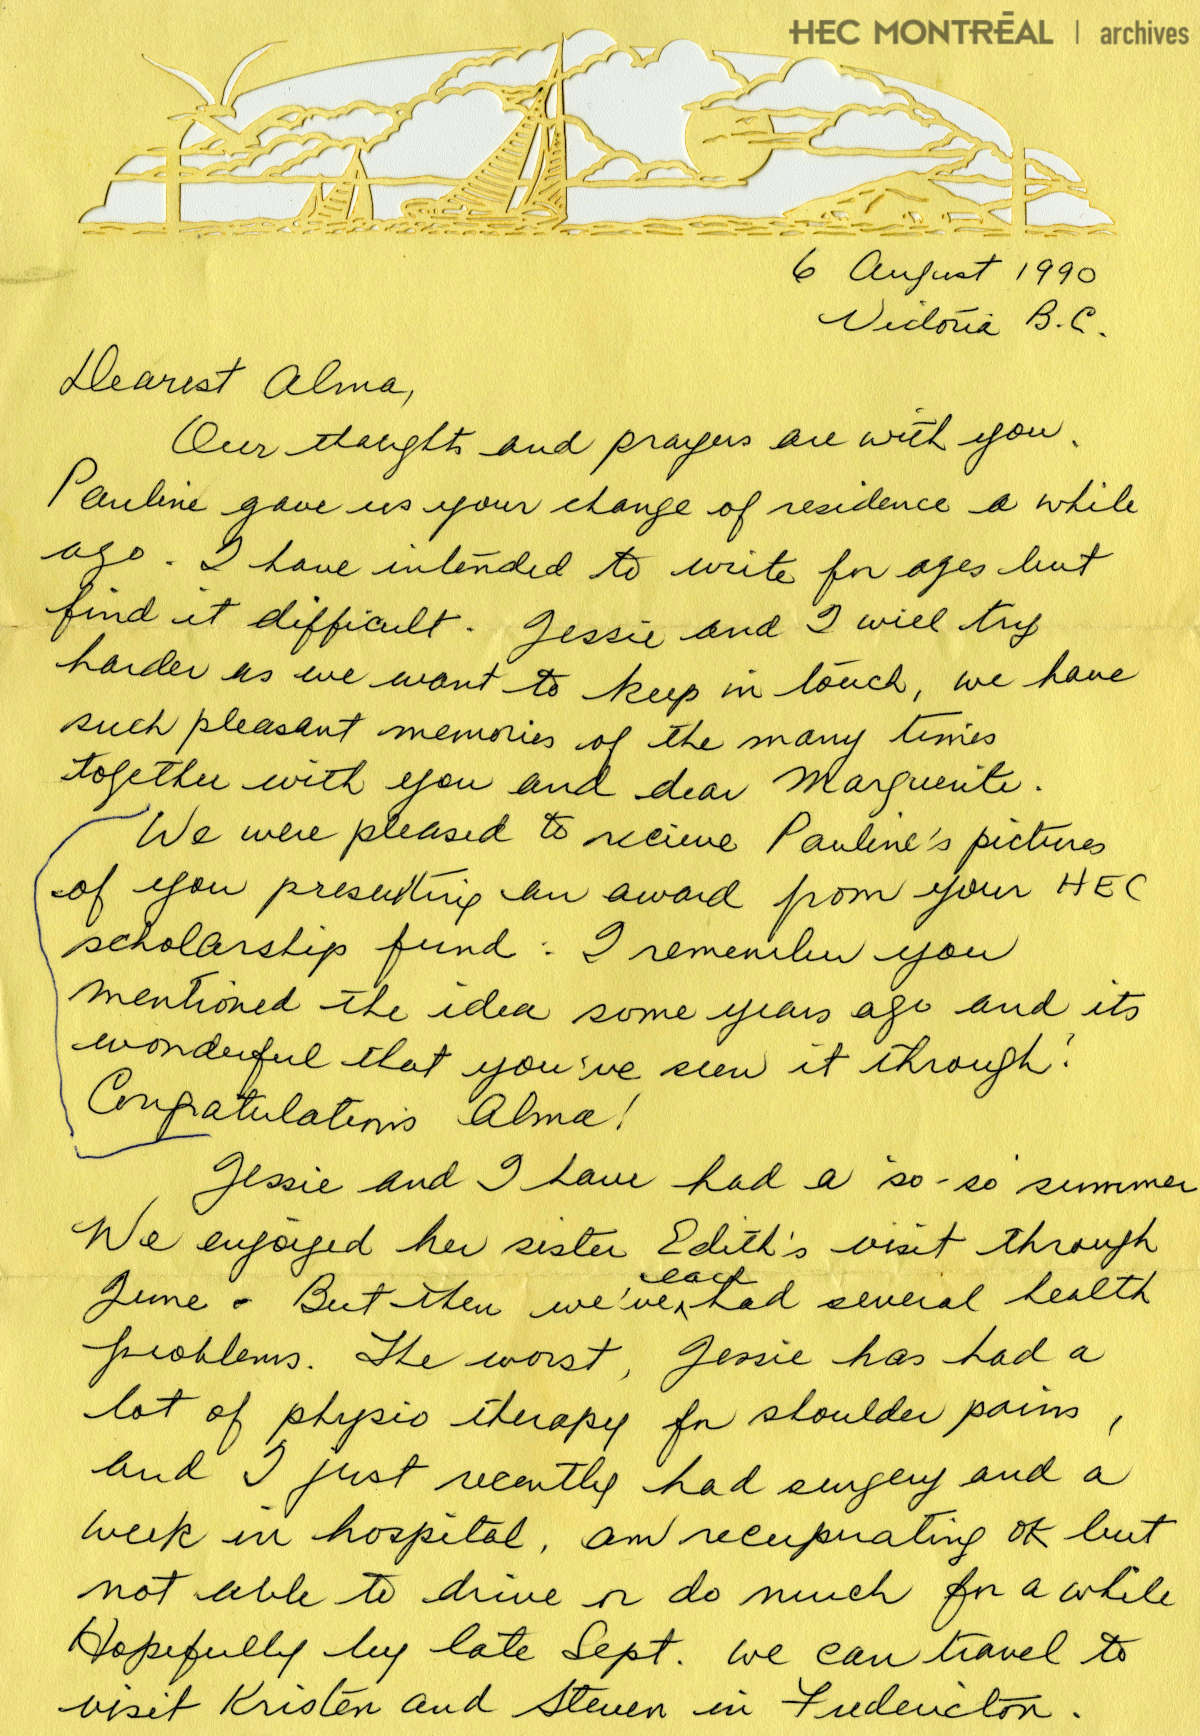 HEC MONTRĒAL | archives
6 August 1990
Victoria B.C.
Dearest Alma,
Our thoughts and prayers are with you.
Pauline gave us your change of residence a while
ago. I have intended to write for ages but
find it difficult. Jessie and I will try
harder as we want to keep in touch, we have
such pleasant memories of the many times
together with you and dear Marguerite.
We were pleased to recieve Pauline's pictures
of you presenting an award from your HEC
scholarship fund. I remember you
mentioned the idea some years ago and its
wonderful that you've seen it through!
Congratulations Alma!
Jessie and I have had a so-so summer
We enjoyed her sister Edith's visit through
June - But then we've each had several health
problems. The worst, Jessie has had a
lot of physio therapy for shoulder pains,
and I just recently had surgery and a
week in hospital, am recuperating OK but
not able to drive or do much for a while
Hopefully by late Sept. we can travel to
visit Kristen and Steven in Fredericton.